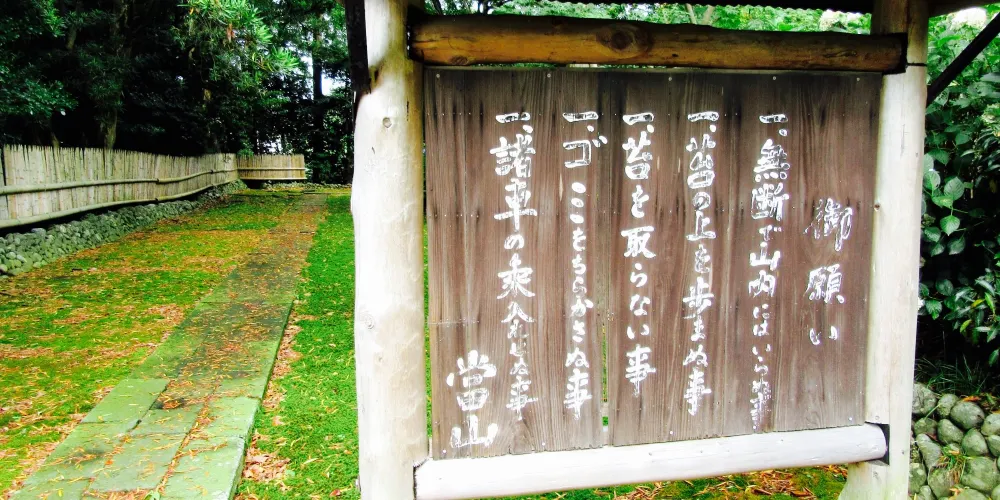 御願い
一、無断で山内にはいらぬ事
一、苔の上を歩まぬ事
一、苔を取らない事
一、ゴミをちらかさぬ事
一、諸車の乗入れしぬ事
當山